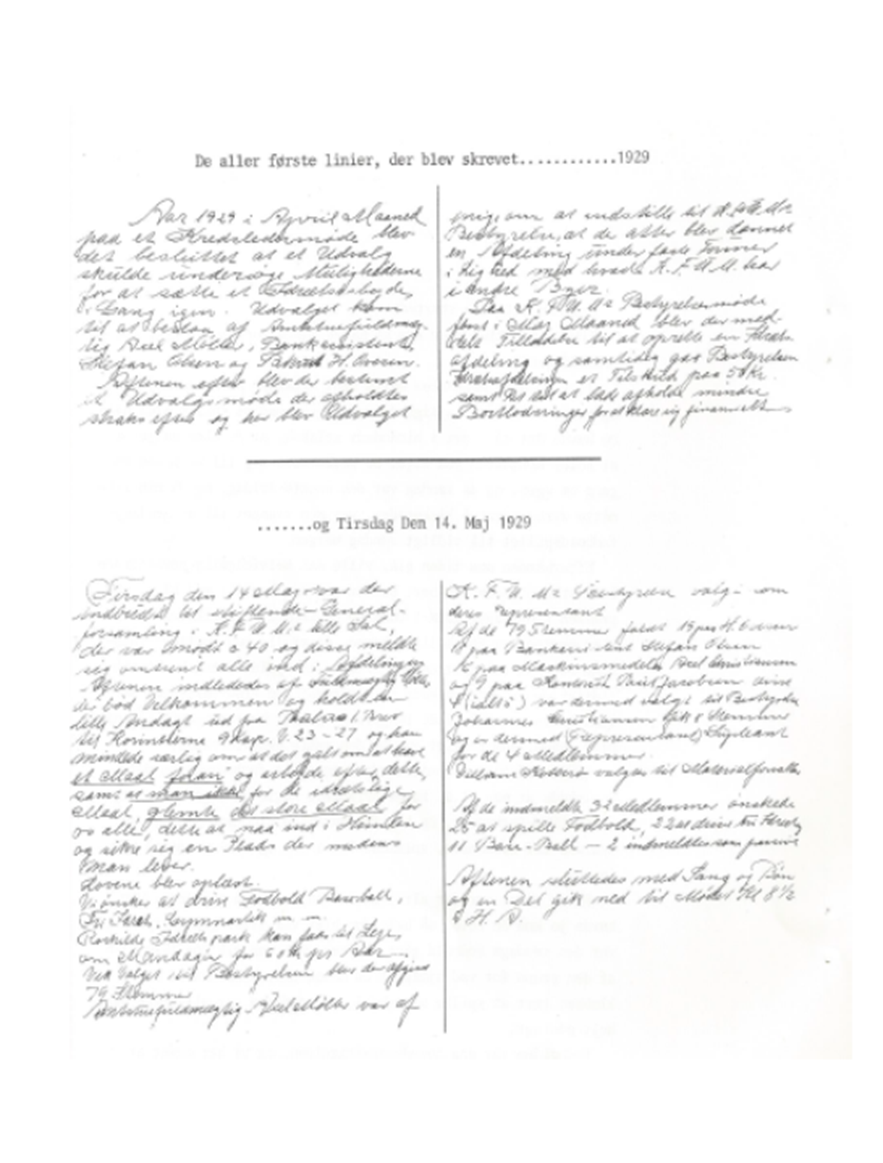 De aller første linier, der blev skrevet............1929
Aar 1929 i April Maaned
paa et Kredsledermøde blev
det besluttet at et Udvalg
skulde undersøge Mulighederne
for at sætte et Idrætsarbejde
i Gang igen. Udvalget kom
til at bestaa af
Axel Møller, Bankassistent
Stefan Olsen og H. Oversen.
Aftenen efter blev der bestemt
et Udvalgsmøde der afholdtes
straks efter og her blev Udvalget
enige om at indstille til K.F.U.M.s
Bestyrelse, at der atter blev dannet
en Afdeling under faste Former
i Lighed med hvad K.F.U.M. har
i andre Byer.
Paa K.F.U.M.s Bestyrelsesmøde
først i Maj Maaned blev der med-
delt Tilladelse til at oprette en Idræts
afdeling og samtidig gav Bestyrelsen
Idrætsafdelingen et Tilskud paa 50 Kr.
samt til at lade afholde mindre
Bortlodninger for at klare sig finansielt
.......og Tirsdag Den 14. Maj 1929
Tirsdag den 14 Maj var der
indbudt til stiftende General-
forsamling i K.F.U.M.s lille Sal,
der var mødt c. 40 og disse meldte
sig omtrent alle ind i Afdelingen
Aftenen indlededes af
der bød Velkommen og holdt en
lille Andagt ud fra Paulus 1. Brev
til Korinterne 9 Kap. V. 23-27 og han
mindede særlig om at det galt om at have
et Maal foran og arbejde efter dette,
samt at man ikke for de idrætslige
Maal, glemte det store Maal for
os alle, dette at naa ind i Himlen
og sikre sig en Plads der medens
man lever.
Lovene blev oplæst.
Vi ønsker at drive Fodbold Baseball,
Fri Idræt, Gymnastik m. m.
Roskilde Idrætspark kan faas til Leje
om Mandagen for 60 Kr pr Aar
Ved Valget til Bestyrelsen blev der afgivet
79 Stemmer
Axel Møller var af
K.F.U.M.s Bestyrelse valgt som
deres repræsentant
Af de 79 Stemmer faldt
paa Stefan Olsen
paa Axel Christiansen
og 9 paa Poul Jacobsen disse
4 var dermed valgt til Bestyrelse
Johannes Christiansen fik 8 Stemmer
og er dermed Suppleant
for de 4 Medlemmer.
valgtes til Materialforvalter
Af de indmeldte 32 Medlemmer ønskede
25 at spille Fodbold, 22 at drive Fri Idræt
11 Base-Ball — 2 indmeldtes som passive
Aftenen sluttedes med Sang og Bøn
og en Del gik med til Mødet Kl 8½